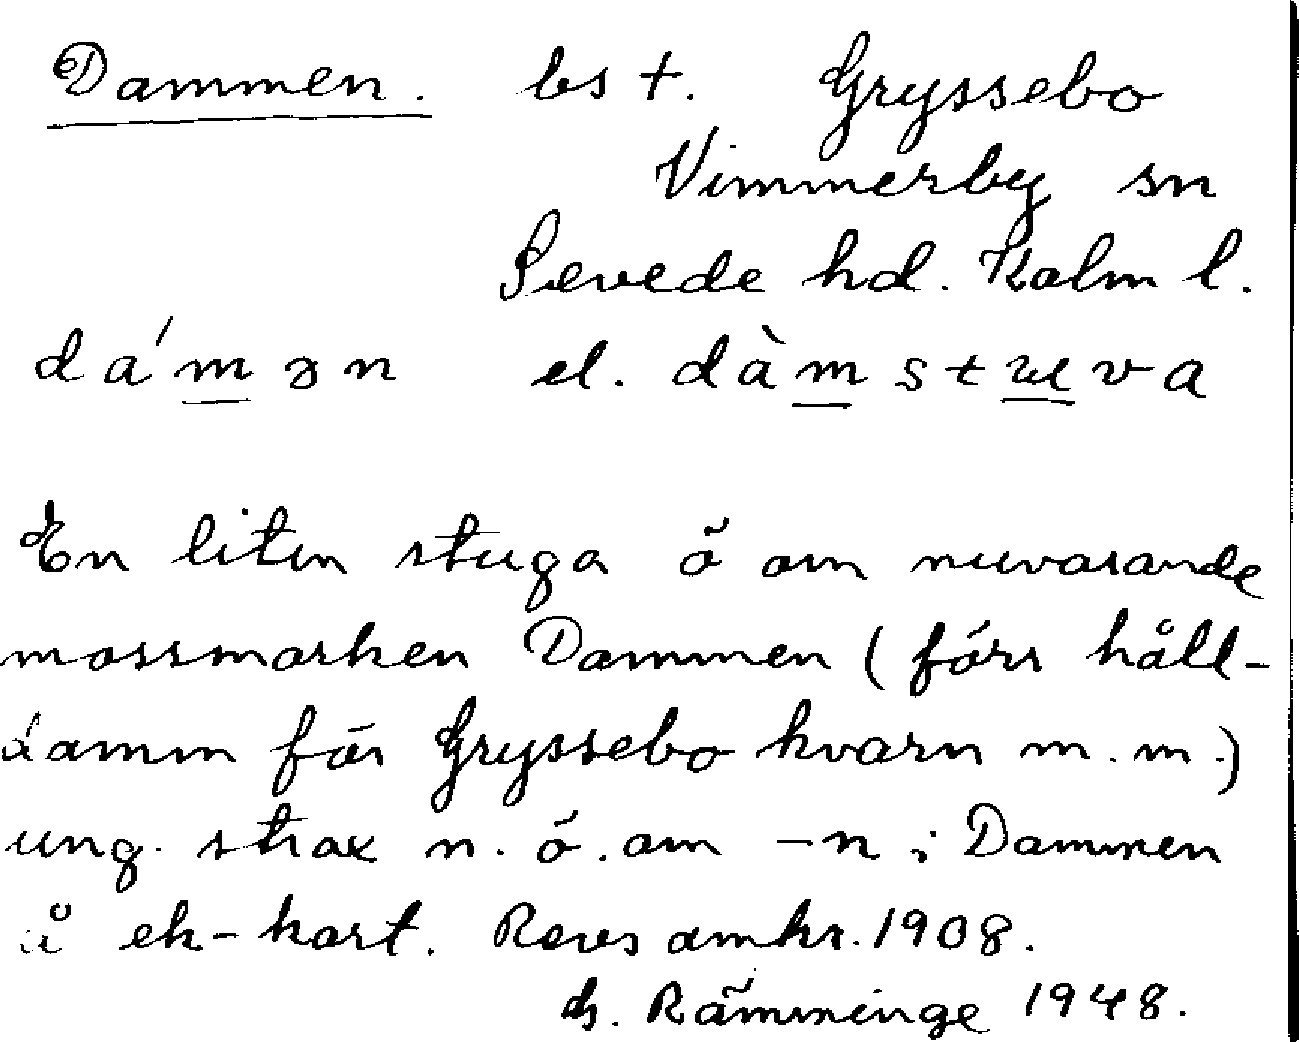 Dammen. bs †. Gryssebo
Vimmerby sn
Sevede hd. Kalm l.
dámən el. dàmstuva
En liten stuga ö om nuvarande
mossmarken Dammen (förr håll-
damm för Gryssebo kvarn m.m.)
ung. strax n.ö. om -n i Dammen
å ek-kart. Revs omkr. 1908.
Rämminge 1948.